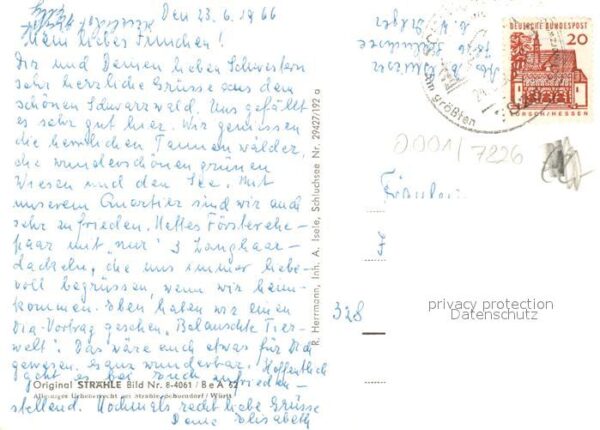 Den 23.6.1966
Mein liebes Finchen!
Dir und Deinen lieben Schwestern
sehr herzliche Grüsse aus dem
schönen Schwarzwald. Uns gefällt
es sehr gut hier. Wir geniessen
die herrlichen Tannenwälder,
die wunderschönen grünen
Wiesen und den See. Mit
unserem Quartier sind wir auch
sehr zufrieden. Nettes Försterehe-
paar mit "nur" 3 Langhaar-
dackeln, die uns immer liebe-
voll begrüssen, wenn wir heim-
kommen. Eben haben wir einen
Dia-Vortrag gesehen, "Belauschte Tier-
welt". Das wäre auch etwas für Dich
gewesen. Ganz wunderbar. Hoffentlich
geht es bei Euch zufrieden-
stellend. Nochmals recht liebe Grüsse
Deine Elisabeth
Original STRÄHLE Bild Nr. 8-4061 / Be A 62
Alleiniges Urheberrecht bei Strähle Schorndorf / Württ
R. Herrmann, Inh. A. Isele, Schluchsee Nr. 29427/192 a
DEUTSCHE BUNDESPOST
20
LORSCH/HESSEN
am größten
0001/7226
328
privacy protection
Datenschutz